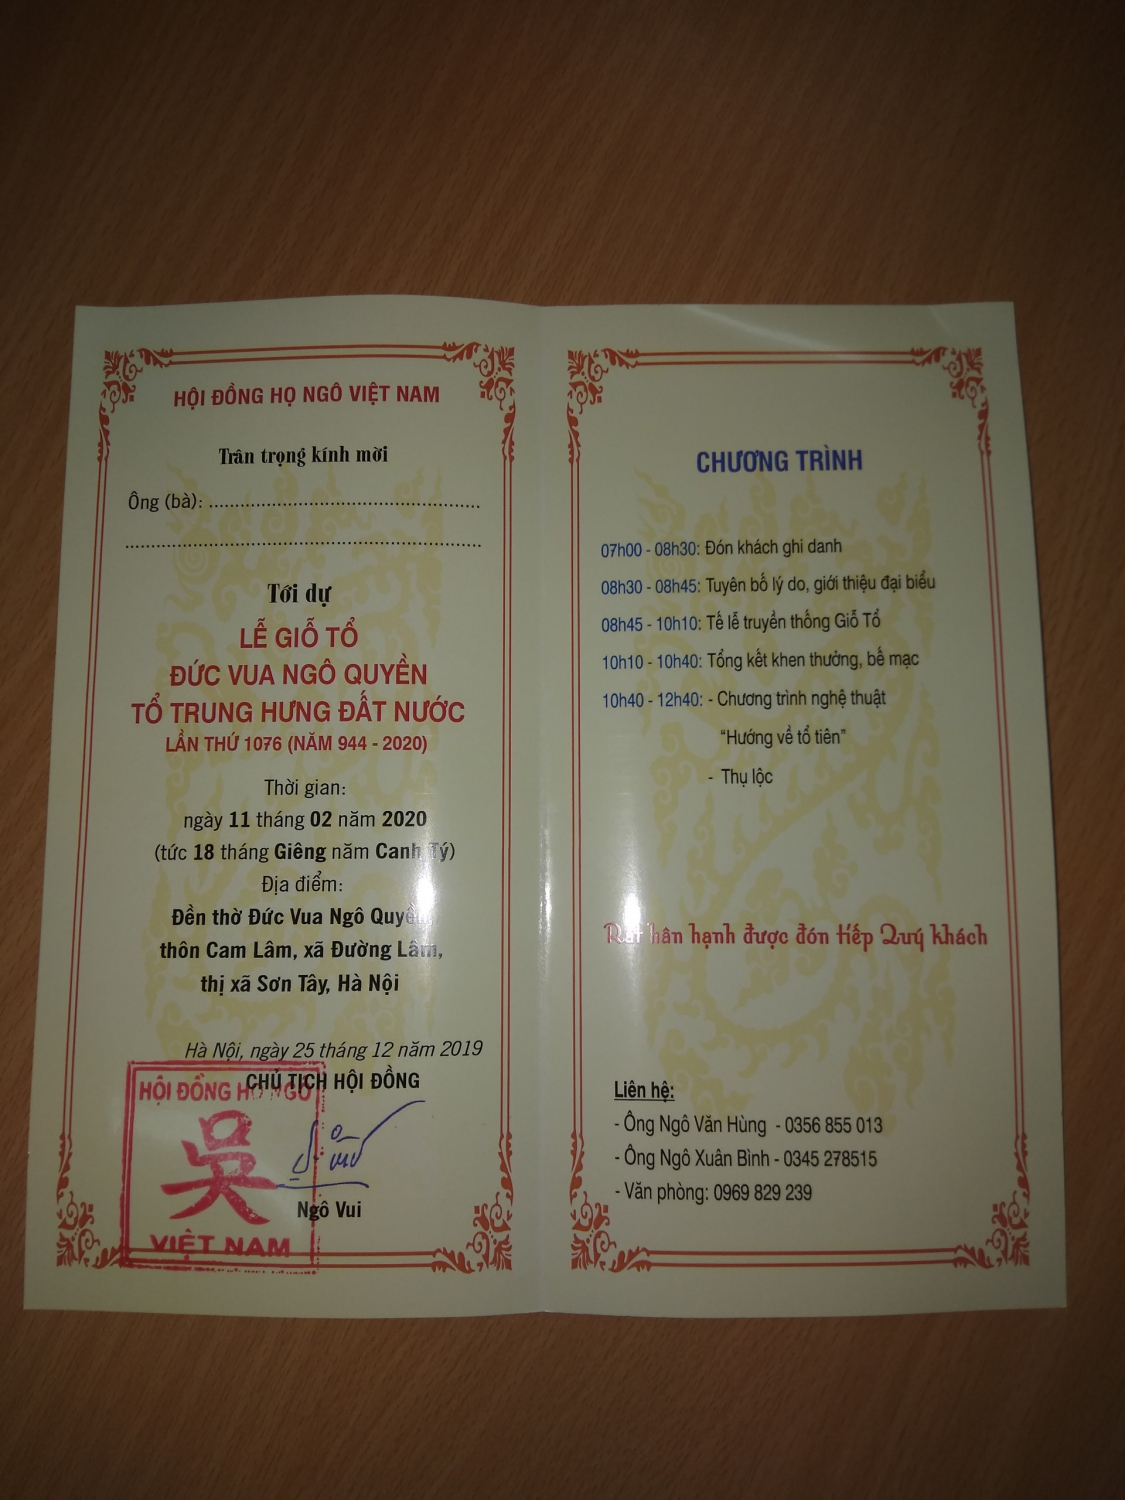 HỘI ĐỒNG HỌ NGÔ VIỆT NAM
Trân trọng kính mời
Ông (bà): ....................................................
....................................................................
Tới dự
LỄ GIỖ TỔ
ĐỨC VUA NGÔ QUYỀN
TỔ TRUNG HƯNG ĐẤT NƯỚC
LẦN THỨ 1076 (NĂM 944 - 2020)
Thời gian:
ngày 11 tháng 02 năm 2020
(tức 18 tháng Giêng năm Canh Tý)
Địa điểm:
Đền thờ Đức Vua Ngô Quyền,
thôn Cam Lâm, xã Đường Lâm,
thị xã Sơn Tây, Hà Nội
Hà Nội, ngày 25 tháng 12 năm 2019
CHỦ TỊCH HỘI ĐỒNG
HỘI ĐỒNG HỌ NGÔ
吳
VIỆT NAM
Ngô Vui
CHƯƠNG TRÌNH
07h00 - 08h30: Đón khách ghi danh
08h30 - 08h45: Tuyên bố lý do, giới thiệu đại biểu
08h45 - 10h10: Tế lễ truyền thống Giỗ Tổ
10h10 - 10h40: Tổng kết khen thưởng, bế mạc
10h40 - 12h40: - Chương trình nghệ thuật
“Hướng về tổ tiên”
- Thụ lộc
Rất hân hạnh được đón tiếp Quý khách
Liên hệ:
- Ông Ngô Văn Hùng - 0356 855 013
- Ông Ngô Xuân Bình - 0345 278515
- Văn phòng: 0969 829 239